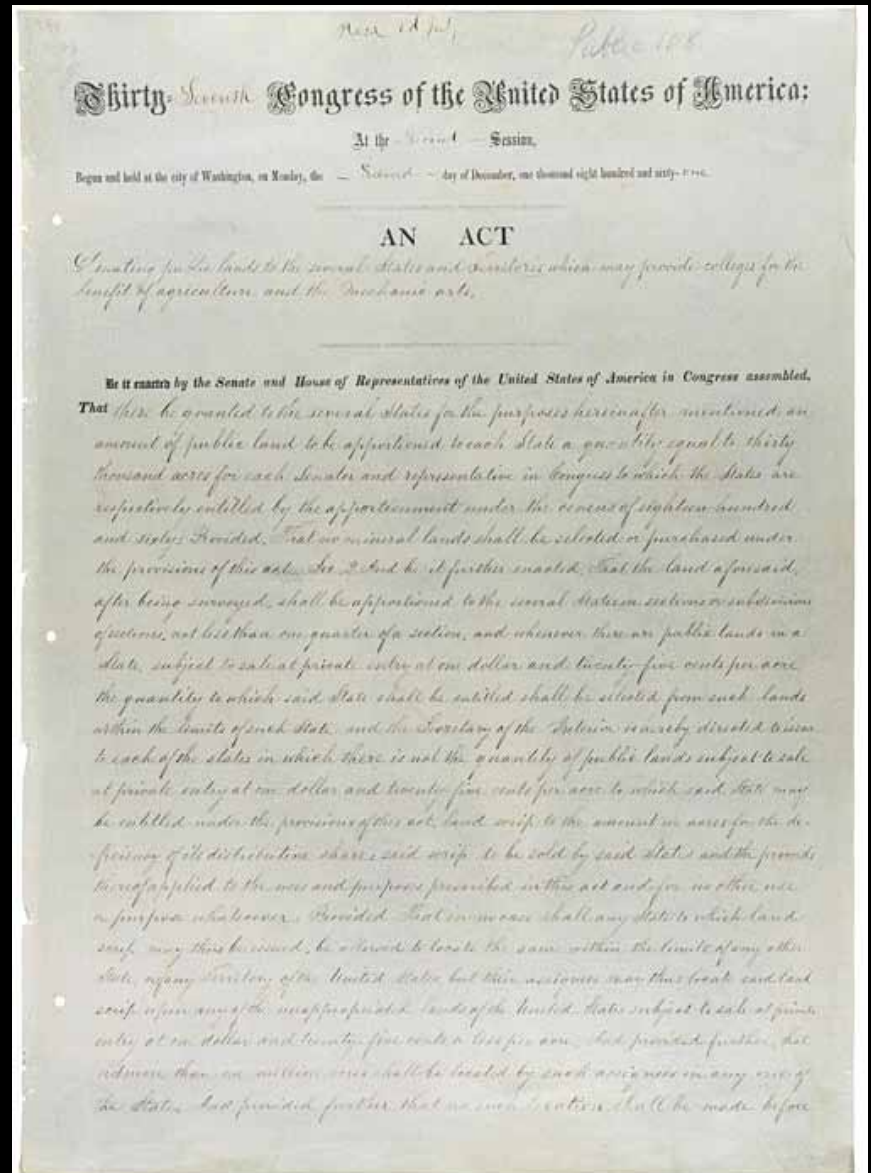 Public 108
Thirty-Seventh Congress of the United States of America:
At the Second Session,
Begun and held at the city of Washington, on Monday, the Second day of December, one thousand eight hundred and sixty-one.
AN ACT
Donating public lands to the several States and Territories which may provide colleges for the
benefit of agriculture and the Mechanic arts.
Be it enacted by the Senate and House of Representatives of the United States of America in Congress assembled,
That there be granted to the several States for the purposes hereinafter mentioned, an
amount of public land to be apportioned to each State a quantity equal to thirty
thousand acres for each Senator and representative in Congress to which the States are
respectively entitled by the apportionment under the census of eighteen hundred
and sixty: Provided, That no mineral lands shall be selected or purchased under
the provisions of this act. Sec. 2. And be it further enacted, That the land aforesaid,
after being surveyed, shall be apportioned to the several States in sections or subdivisions
of sections, not less than one quarter of a section; and whenever there are public lands in a
State, subject to sale at private entry at one dollar and twenty-five cents per acre,
the quantity to which said State shall be entitled shall be selected from such lands
within the limits of such State, and the Secretary of the Interior is hereby directed to issue
to each of the states in which there is not the quantity of public lands subject to sale
at private entry at one dollar and twenty-five cents per acre to which said State may
be entitled under the provisions of this act, land scrip to the amount in acres for the de-
ficiency of its distributive share: said scrip to be sold by said States and the proceeds
thereof applied to the uses and purposes prescribed in this act and for no other use
or purpose whatsoever: Provided, That in no case shall any State to which land
scrip may thus be issued, be allowed to locate the same within the limits of any other
State, or of any Territory of the United States but their assignees may thus locate said land
scrip upon any of the unappropriated lands of the United States subject to sale at private
entry at one dollar and twenty-five cents or less per acre. And provided further, That
not more than one million acres shall be located by such assignees in any one of
the States. And provided further that no such location shall be made before